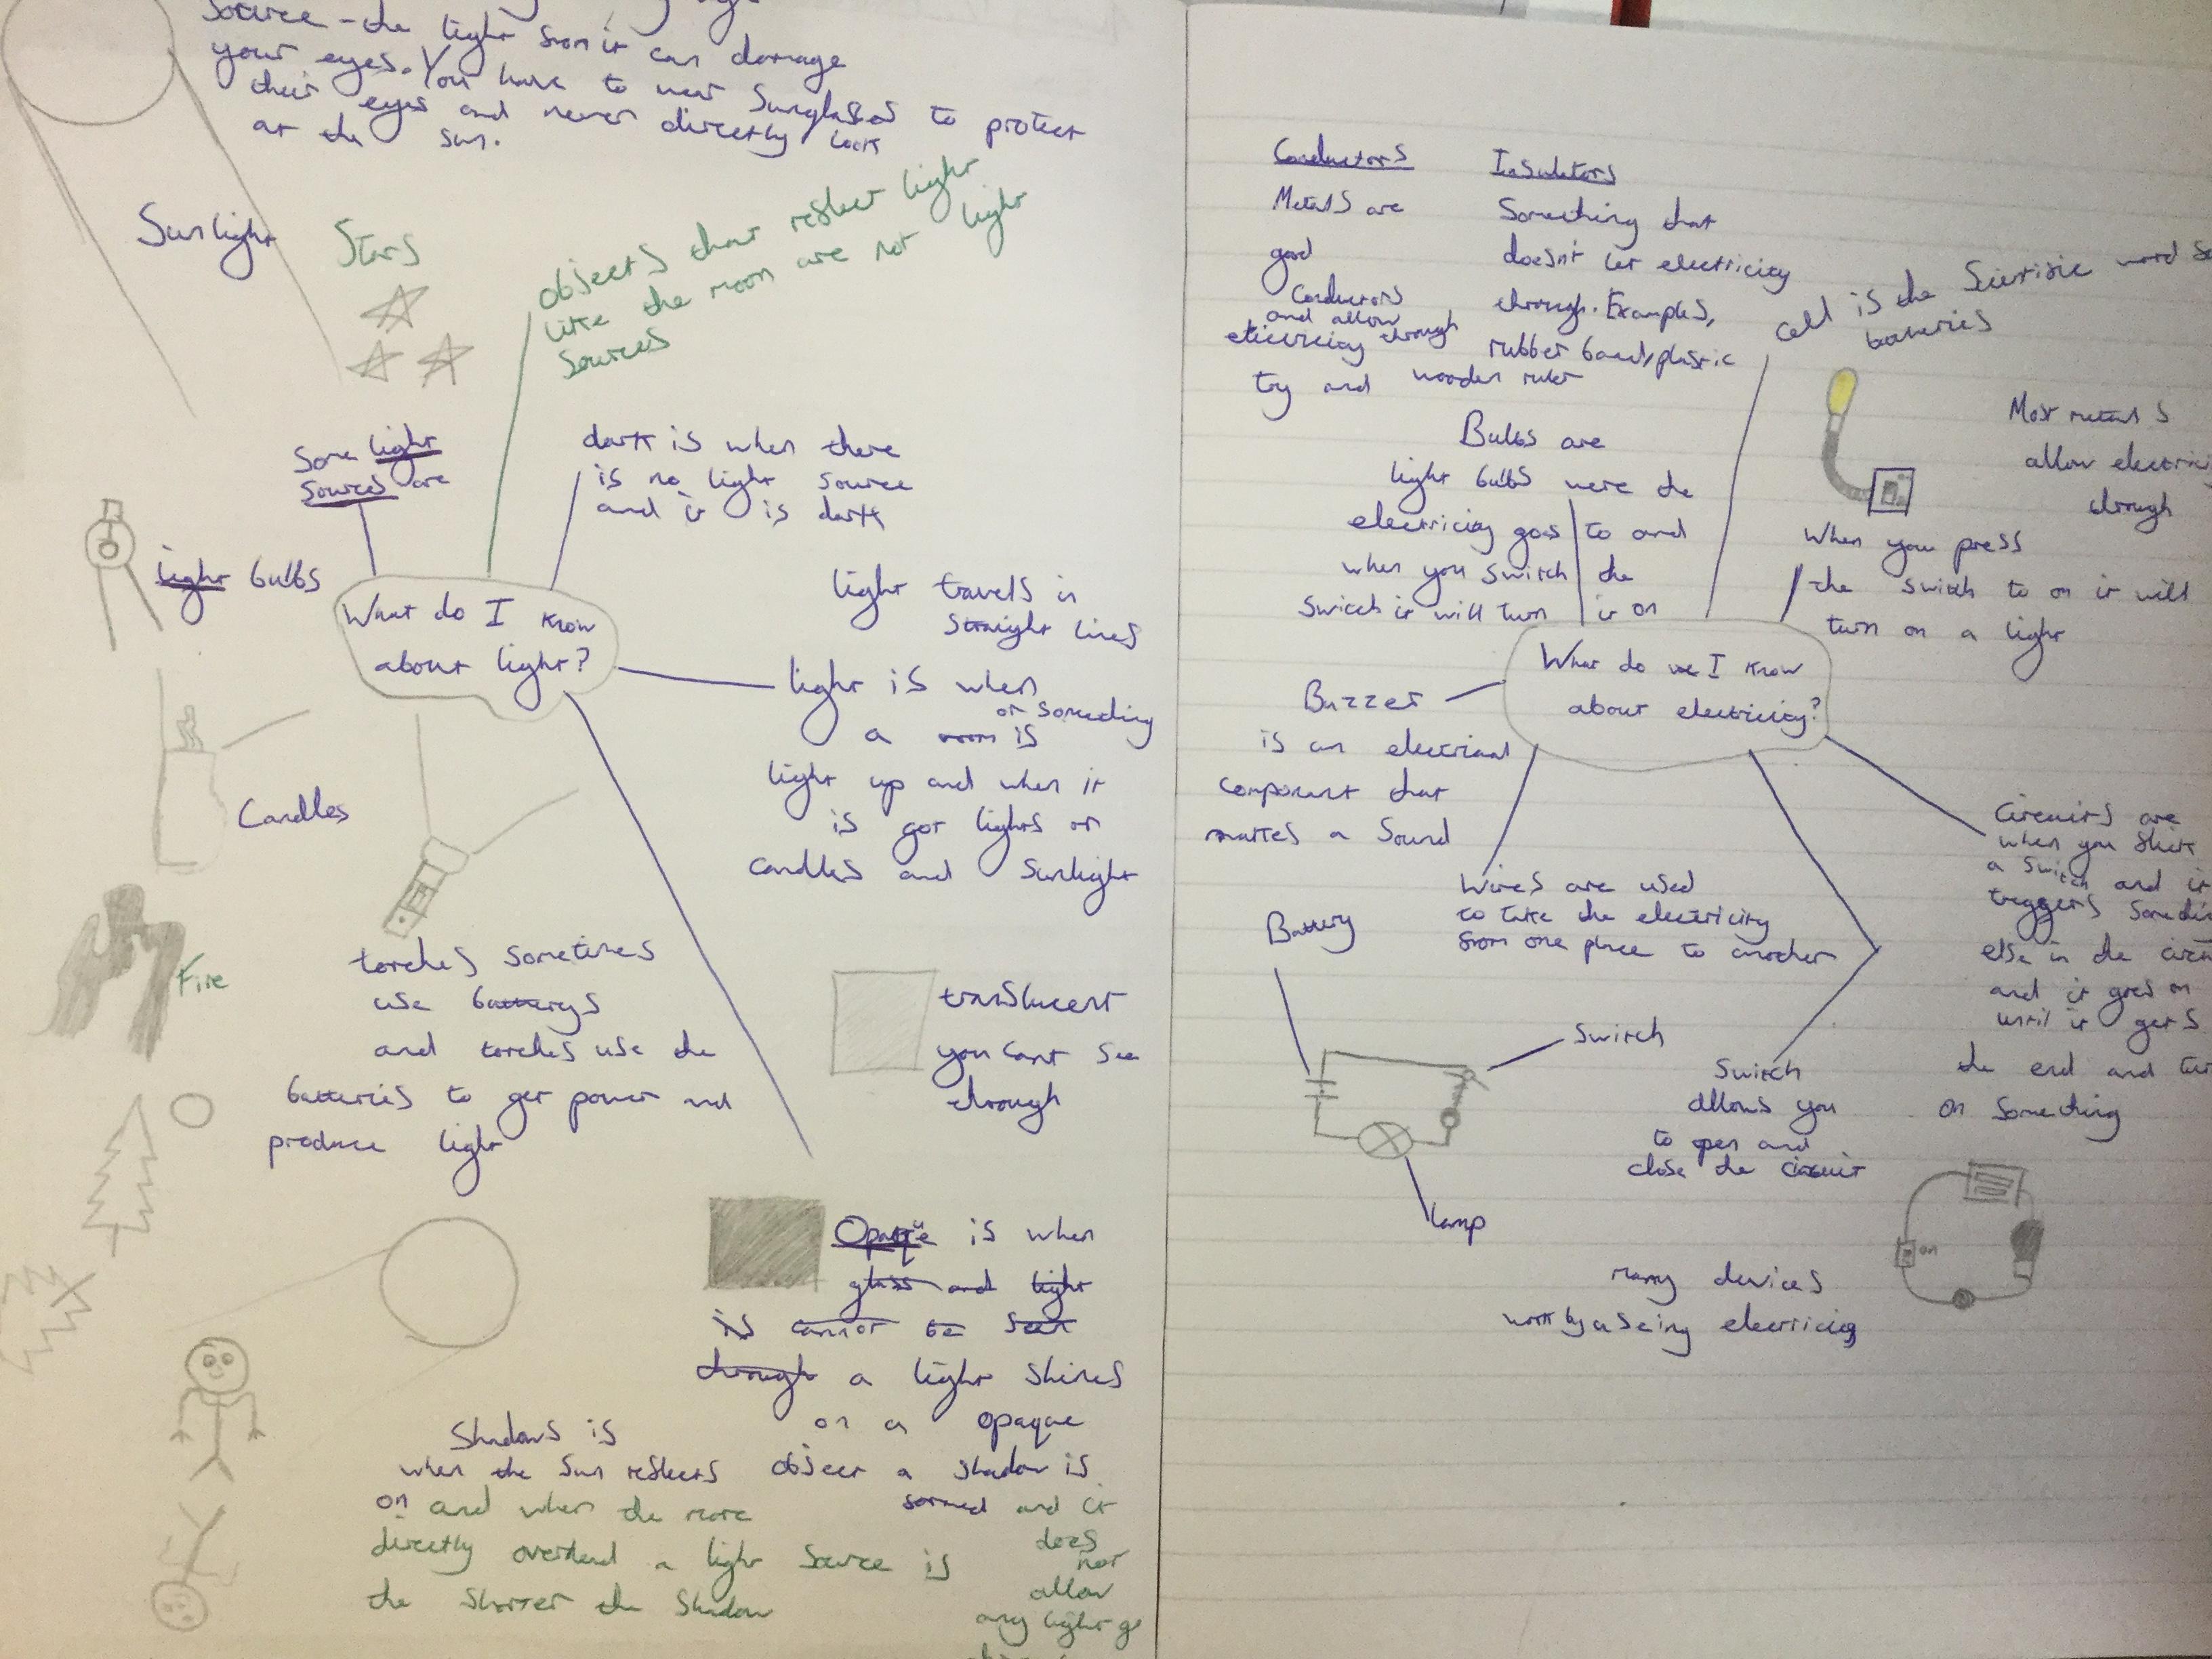 Source - the light from it can damage
your eyes. You have to wear Sunglasses to protect
their eyes and never directly look
at the sun.
Sunlight
Stars
objects that reflect light
like the moon are not light
sources
Some light
sources are
dark is when there
is no light source
and it is dark
light bulbs
What do I know
about light?
light travels in
straight lines
light is when
or something
a room is
light up and when it
is got lights or
candles and sunlight
Candles
Fire
torches sometimes
use batterys
and torches use the
batteries to get power and
produce light
translucent
you cant see
through
Opaque is when
glass and light
is cannot be seen
through a light shines
on a opaque
object a shadow is
formed and it
does
not
allow
any light g
Shadows is
when the sun reflects
on and when the more
directly overhead a light source is
the shorter the shadow
Conductors
Metals are
good
conductors
and allow
eticricity through
try and
Insulators
Something that
doesn't let electricity
through. Examples,
rubber band, plastic
wooden ruler
cell is the Scientific word
batteries
Most metals
allow
through
Bulbs are
light bulbs were the
electricity goes to and
when you switch the
switch it will turn it on
When you press
the switch to on it will
turn on a light
What do we I know
about electricity?
Buzzer
is an electrical
component that
makes a sound
Wires are used
to take the electricity
from one place to another
Battery
Switch
lamp
Switch
allows you
to open and
close the circuit
Circuits are
when you
a switch and it
treggers
else in the
and it goes on
until it gets
the end and
on something
on
many devices
work by useing electricity